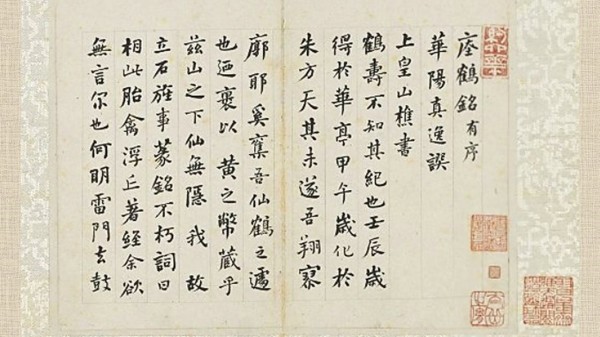 瘞鶴銘有序
華陽真逸譔
上皇山樵書
鶴壽不知其紀也壬辰歲
得於華亭甲午歲化於
朱方天其未遂吾翔寥
廓耶奚奪吾仙鶴之遽
也迺裹以 黃之幣藏乎
茲山之下仙無隱我 故
立石旌事篆銘不朽詞曰
相此胎禽浮丘著經余欲
無言尔也何明雷門去鼓